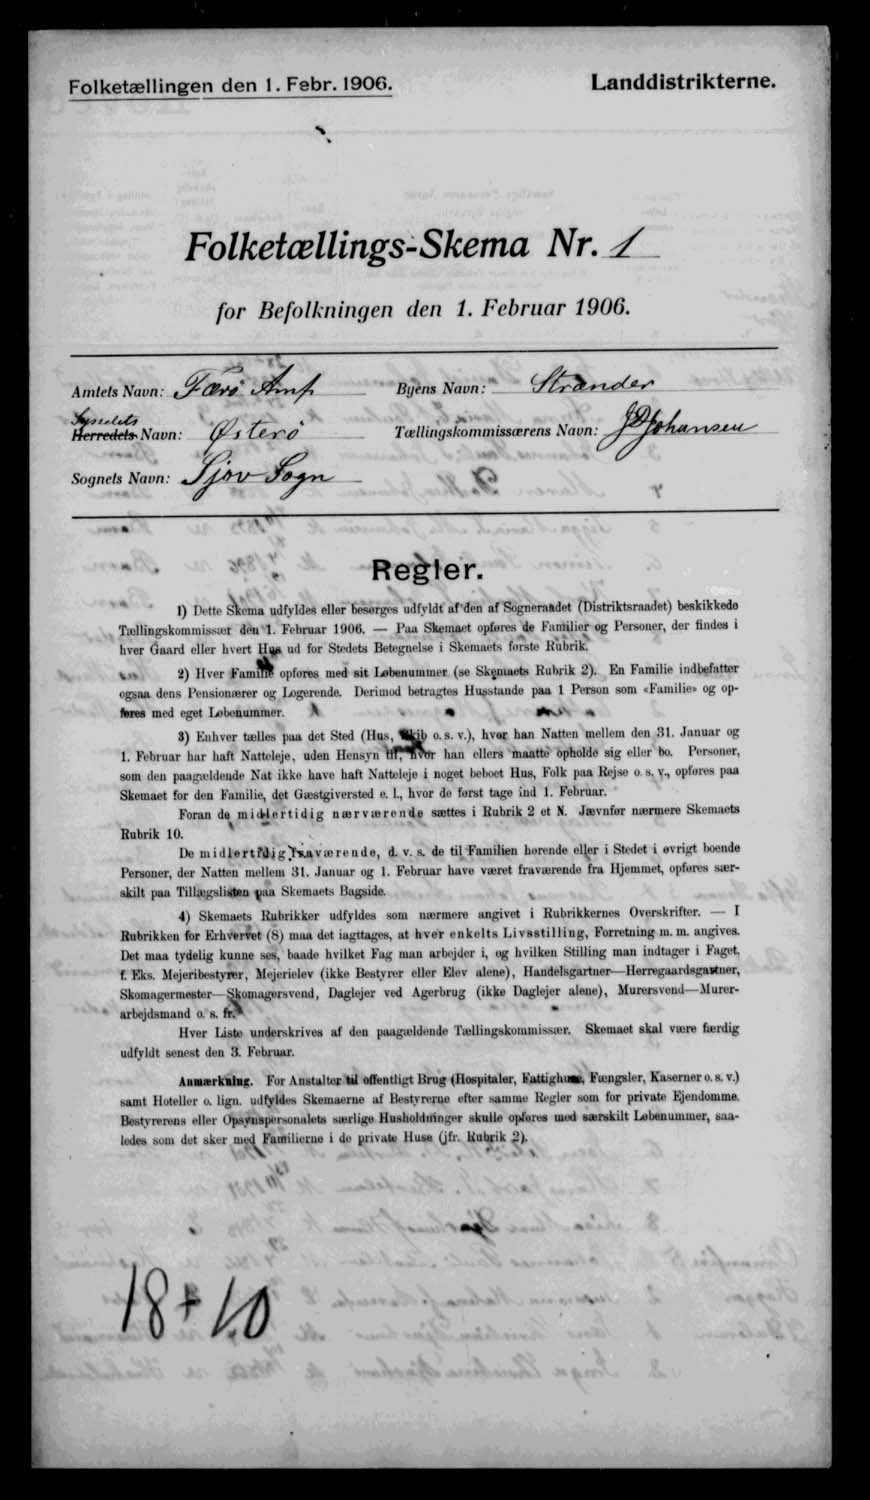 Folketællingen den 1. Febr. 1906.
Landdistrikterne.
Folketællings-Skema Nr. 1
for Befolkningen den 1. Februar 1906.
Amtets Navn: Færø Amt
Byens Navn: Strænder
Sysselets
Herredets Navn: Østerø
Tællingskommissærens Navn: JDJohansen
Sognets Navn: Sjov Sogn
Regler.
1) Dette Skema udfyldes eller besørges udfyldt af den af Sogneraadet (Distriktsraadet) beskikkede
Tællingskommissær den 1. Februar 1906. — Paa Skemaet opføres de Familier og Personer, der findes i
hver Gaard eller hvert Hus ud for Stedets Betegnelse i Skemaets første Rubrik.
2) Hver Familie opføres med sit Løbenummer (se Skemaets Rubrik 2). En Familie indbefatter
ogsaa dens Pensionærer og Logerende. Derimod betragtes Husstande paa 1 Person som «Familie» og op-
føres med eget Løbenummer.
3) Enhver tælles paa det Sted (Hus, Skib o. s. v.), hvor han Natten mellem den 31. Januar og
1. Februar har haft Natteleje, uden Hensyn til, hvor han ellers maatte opholde sig eller bo. Personer,
som den paagældende Nat ikke have haft Natteleje i noget beboet Hus, Folk paa Rejse o. s. v., opføres paa
Skemaet for den Familie, det Gæstgiversted e. l., hvor de først tage ind 1. Februar.
Foran de midlertidig nærværende sættes i Rubrik 2 et N. Jævnfør nærmere Skemaets
Rubrik 10.
De midlertidig fraværende, d. v. s. de til Familien hørende eller i Stedet i øvrigt boende
Personer, der Natten mellem 31. Januar og 1. Februar have været fraværende fra Hjemmet, opføres sær-
skilt paa Tillægslisten paa Skemaets Bagside.
4) Skemaets Rubrikker udfyldes som nærmere angivet i Rubrikkernes Overskrifter. — I
Rubrikken for Erhvervet (8) maa det iagttages, at hver enkelts Livsstilling, Forretning m. m. angives.
Det maa tydelig kunne ses, baade hvilket Fag man arbejder i, og hvilken Stilling man indtager i Faget,
f. Eks. Mejeribestyrer, Mejerielev (ikke Bestyrer eller Elev alene), Handelsgartner—Herregaardsgartner,
Skomagermester—Skomagersvend, Daglejer ved Agerbrug (ikke Daglejer alene), Murersvend—Murer-
arbejdsmand o. s. fr.
Hver Liste underskrives af den paagældende Tællingskommissær. Skemaet skal være færdig
udfyldt senest den 3. Februar.
Anmærkning. For Anstalter til offentligt Brug (Hospitaler, Fattighuse, Fængsler, Kaserner o. s. v.)
samt Hoteller o. lign. udfyldes Skemaerne af Bestyrerne efter samme Regler som for private Ejendomme.
Bestyrerens eller Opsynspersonalets særlige Husholdninger skulle opføres med særskilt Løbenummer, saa-
ledes som det sker med Familierne i de private Huse (jfr. Rubrik 2).
18+10